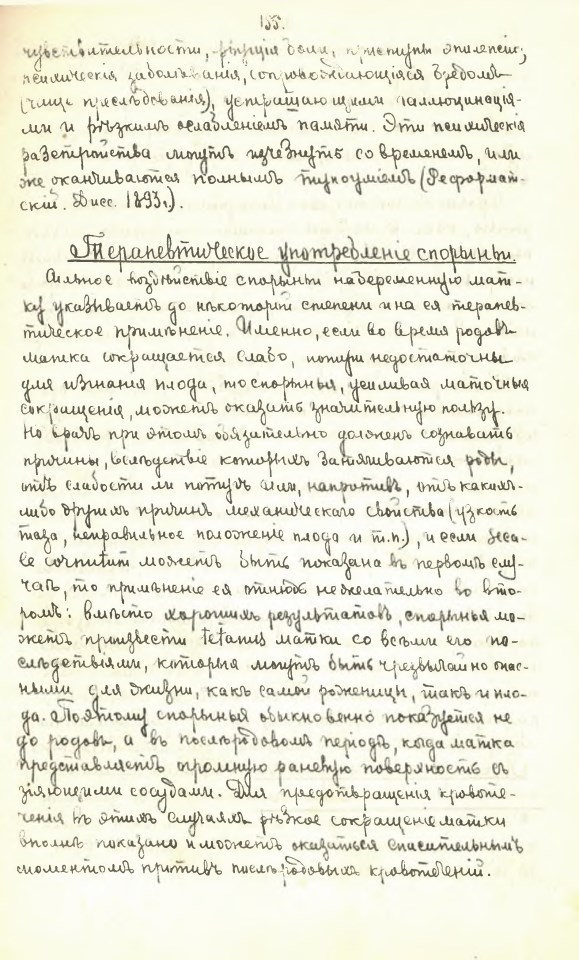 155.
чувствительности, рѣжущія боли, приступы эпилепсіи,
психическія заболѣванія, сопровождающіяся бредомъ
(чаще преслѣдованія), устрашающими галлюцинація-
ми и рѣзкимъ ослабленіемъ памяти. Эти психическія
разстройства могутъ изчезнуть со временемъ, или
же оканчиваются полнымъ тупоуміемъ (Реформат-
скій. Дисс. 1893г.).
Терапевтическое употребленіе спорыньи.
Сильное воздѣйствіе спорыньи на беременную мат-
ку указываетъ до нѣкоторой степени и на ея терапев-
тическое примѣненіе. Именно, если во время родовъ
матка сокращается слабо, потуги недостаточны
для изгнанія плода, то спорынья, усиливая маточныя
сокращенія, можетъ оказать значительную пользу.
Но врачъ при этомъ обязательно долженъ сознавать
причины, вслѣдствіе которыхъ затягиваются роды,
отъ слабости ли потугъ или, напротивъ, отъ какихъ-
либо другихъ причинъ механическаго свойства (узкость
таза, неправильное положеніе плода и т.п.), и если Seca-
le cornutum можетъ быть показана въ первомъ слу-
чаѣ, то примѣненіе ея отнюдь нежелательно во вто-
ромъ: вмѣсто хорошихъ результатовъ, спорынья мо-
жетъ произвести tetanus матки со всѣми его по-
слѣдствіями, которыя могутъ быть чрезвычайно опас-
ными для жизни, какъ самой роженицы, такъ и пло-
да. Поэтому спорынья обыкновенно показуется не
до родовъ, а въ послѣродовомъ періодѣ, когда матка
представляетъ огромную раневую поверхность съ
зіяющими сосудами. Для предотвращенія кровоте-
ченія въ этихъ случаяхъ рѣзкое сокращеніе матки
вполнѣ показано и можетъ оказаться спасительнымъ
моментомъ противъ послѣродовыхъ кровотеченій.